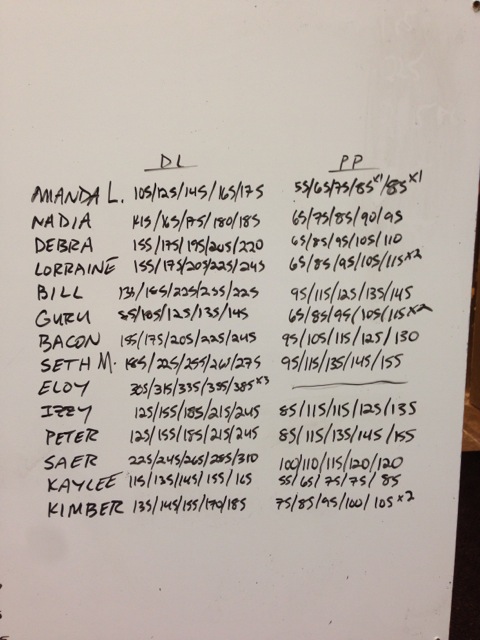 DL PP
AMANDA L. 105/125/145/165/175 55/65/75/85x1/85x1
NADIA 145/165/175/180/185 65/75/85/90/95
DEBRA 155/175/195/205/220 65/85/95/105/110
LORRAINE 155/175/205/225/245 65/85/95/105/115x2
BILL 95/115/125/135/145
GURU 85/105/125/135/145 65/85/95/105/115x2
BACON 155/175/205/225/245 95/105/115/125/130
SETH M. 185/225/255/260/275 95/115/135/145/155
ELOY 305/315/335/355/385x3
IZZY 125/155/185/215/245 85/115/115/125/135
PETER 125/155/185/215/245 85/115/135/145/155
SAER 225/245/265/285/310 100/110/115/120/120
KAYLEE 115/135/145/155/165 55/65/75/75/85
KIMBER 135/145/155/170/185 75/85/95/100/105x2